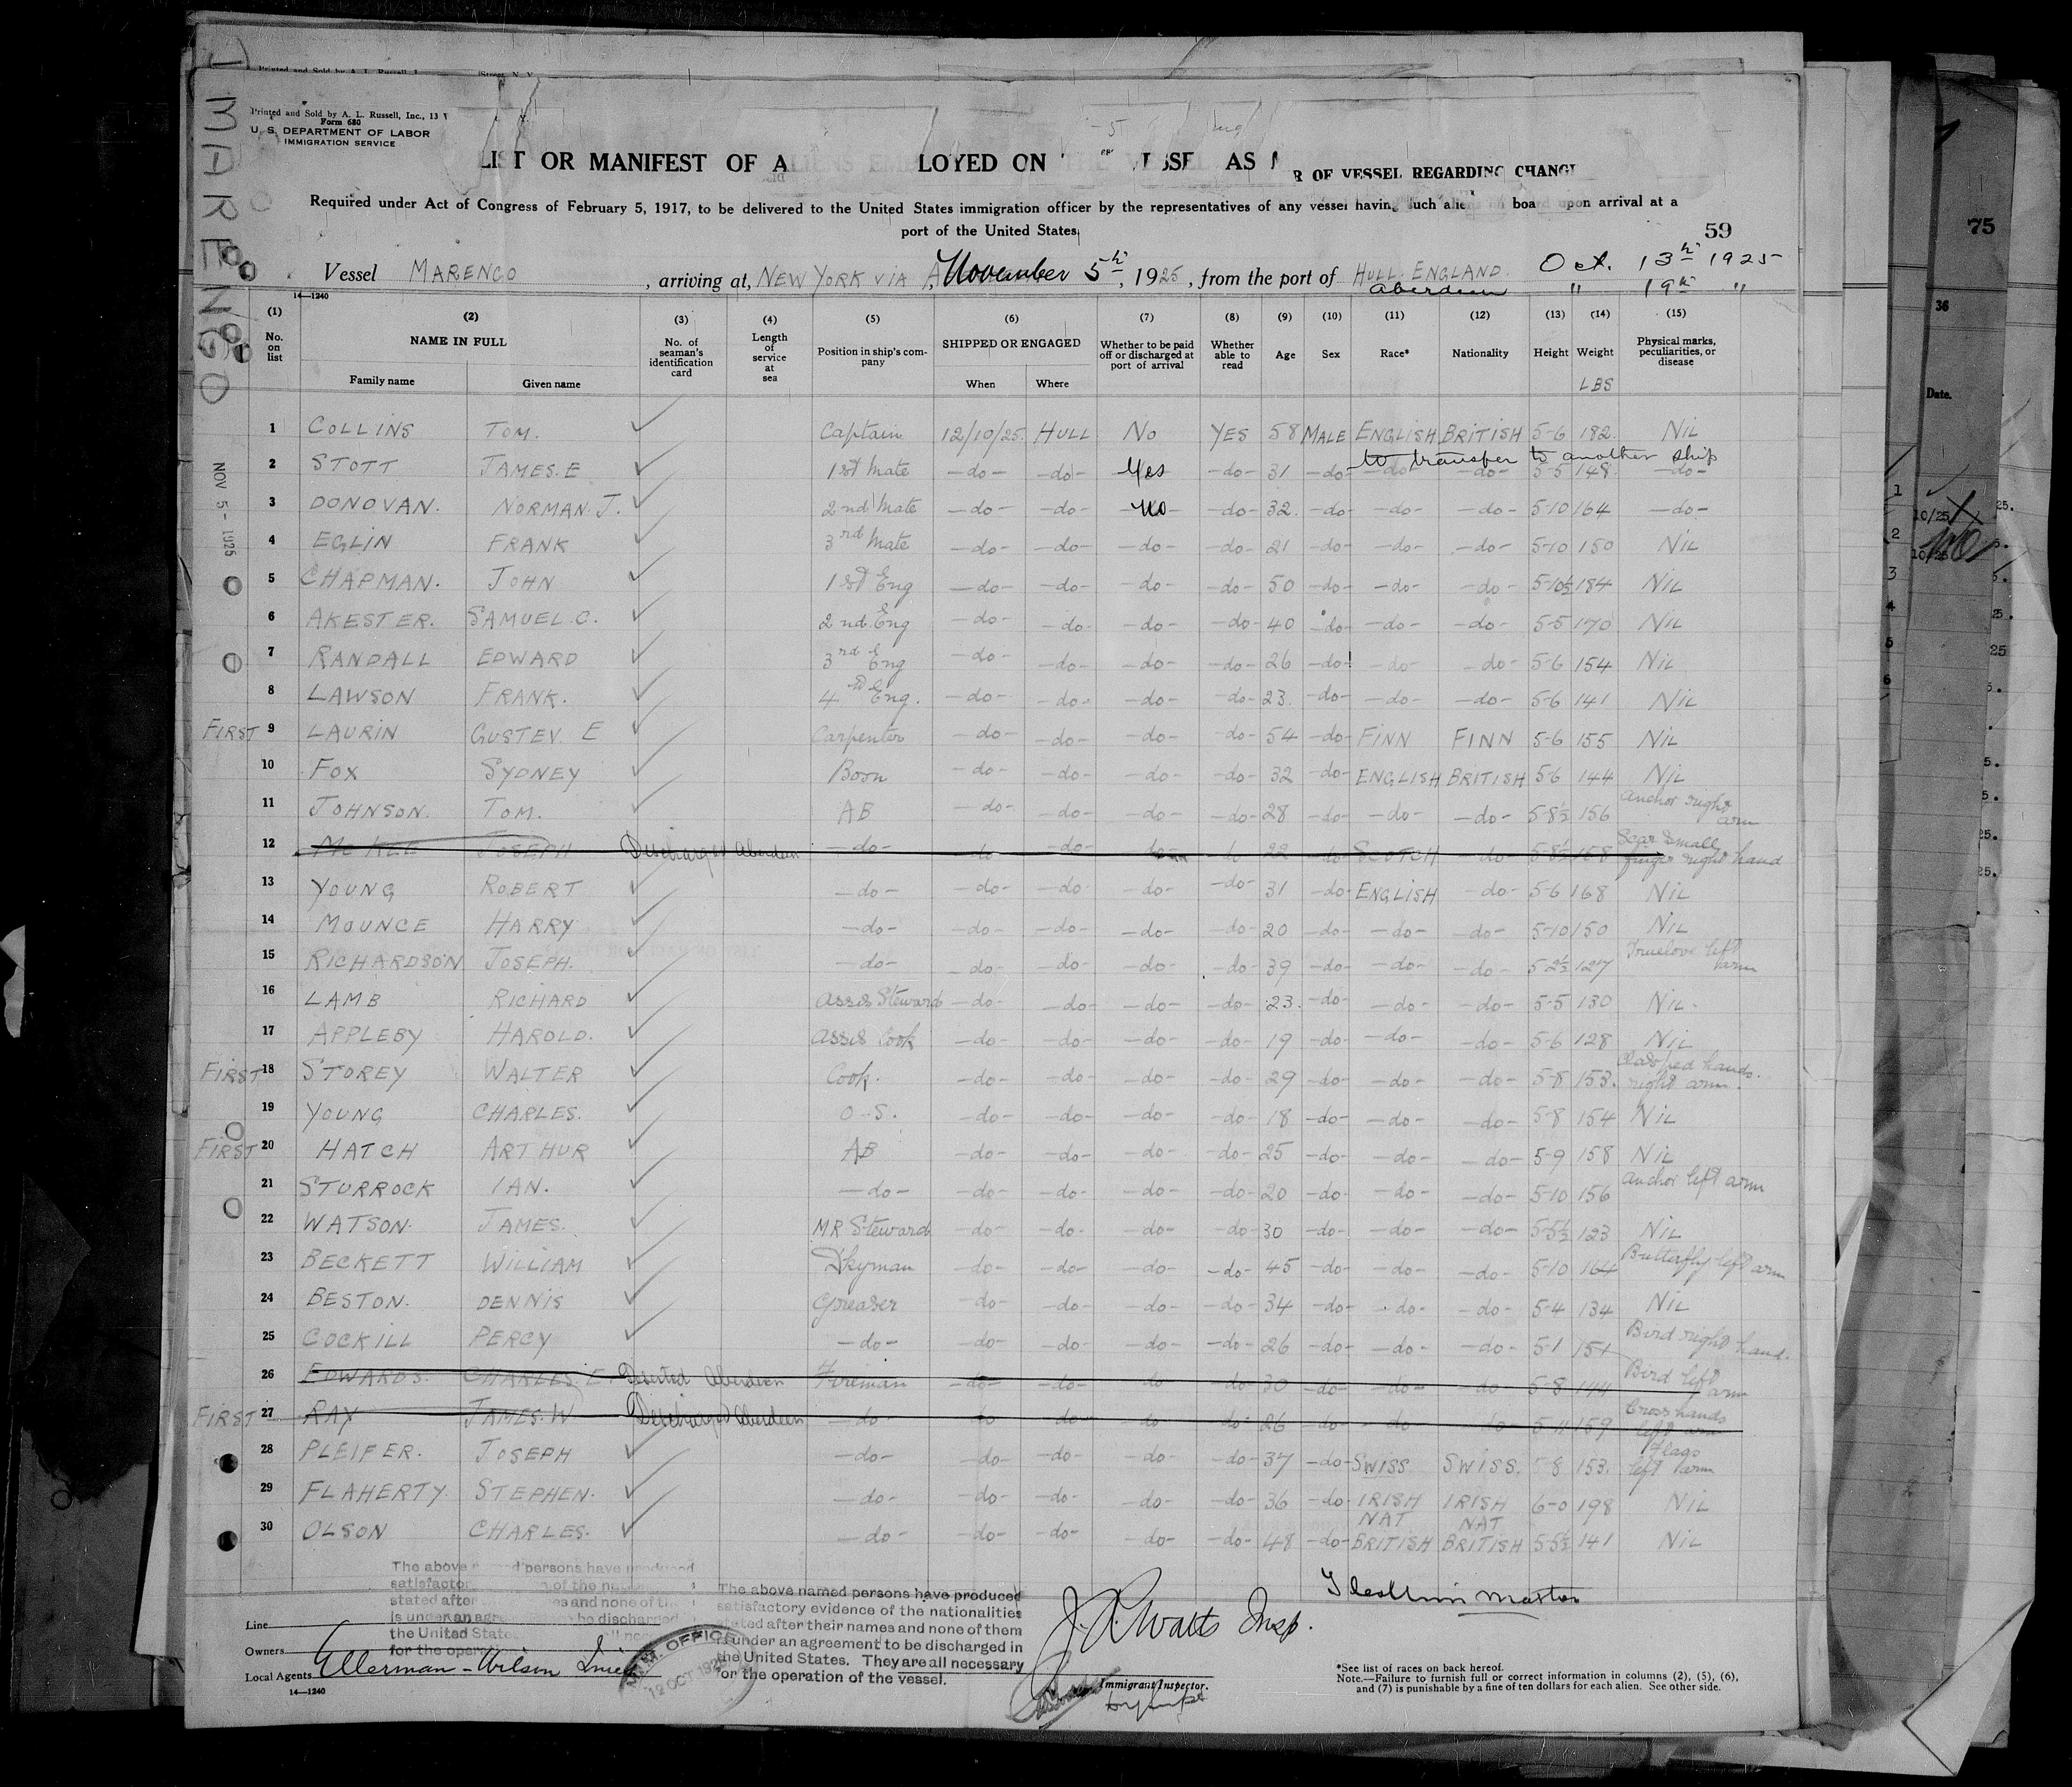 Printed and Sold by A. L. Russell,
Street, N. Y.
Printed and Sold by A. L. Russell, Inc., 13
Form 680
U. S. DEPARTMENT OF LABOR
IMMIGRATION SERVICE
MARENGO
NOV 5 - 1925
LIST OR MANIFEST OF A LOYED ON VESSEL AS
R OF VESSEL REGARDING CHANG
Required under Act of Congress of February 5, 1917, to be delivered to the United States immigration officer by the representatives of any vessel having such aliens on board upon arrival at a
port of the United States
59
Vessel MARENGO, arriving at, NEW YORK VIA November 5th, 1925, from the port of HULL. ENGLAND. Oct. 13th 1925
Aberdeen " 19th "
14—1240
(1) (2) (3) (4) (5) (6) (7) (8) (9) (10) (11) (12) (13) (14) (15)
No. on list NAME IN FULL Family name Given name No. of seaman's identification card Length of service at sea Position in ship's company SHIPPED OR ENGAGED When Where Whether to be paid off or discharged at port of arrival Whether able to read Age Sex Race* Nationality Height Weight LBS Physical marks, peculiarities, or disease
1 COLLINS TOM. Captain 12/10/25. HULL No YES 58 MALE ENGLISH BRITISH 5-6 182. NIL
to transfer to another ship
2 STOTT JAMES. E 1st Mate —do— —do— Yes —do— 31 —do— —do— —do— 5-5 148. —do—
3 DONOVAN. NORMAN. J. 2nd Mate —do— —do— No —do— 32. —do— —do— —do— 5-10 164 —do—
4 EGLIN FRANK 3rd Mate —do— —do— —do— —do— 21 —do— —do— —do— 5-10 150 NIL
5 CHAPMAN. JOHN 1st Eng —do— —do— —do— —do— 50 —do— —do— —do— 5-10½ 184 NIL
6 AKESTER. SAMUEL. C. 2nd Eng —do— —do— —do— —do— 40 —do— —do— —do— 5-5 170 NIL
7 RANDALL EDWARD 3rd Eng —do— —do— —do— —do— 26 —do— —do— —do— 5-6 154 NIL
8 LAWSON FRANK. 4th Eng. —do— —do— —do— —do— 23. —do— —do— —do— 5-6 141 NIL
FIRST 9 LAURIN GUSTEV E Carpenter —do— —do— —do— —do— 54 —do— FINN FINN 5-6 155 NIL
10 FOX SYDNEY Bosn —do— —do— —do— —do— 32 —do— ENGLISH BRITISH 5-6 144 NIL
11 JOHNSON. TOM. AB —do— —do— —do— —do— 28 —do— —do— —do— 5-8½ 156 Anchor right arm
12 McKEE JOSEPH Discharged Aberdeen —do— —do— —do— —do— 22 —do— SCOTCH —do— 5-8½ 158 Scar Small finger right hand
13 YOUNG ROBERT —do— —do— —do— —do— —do— 31 —do— ENGLISH —do— 5-6 168 NIL
14 MOUNCE HARRY —do— —do— —do— —do— —do— 20 —do— —do— —do— 5-10 150 NIL
15 RICHARDSON JOSEPH. —do— —do— —do— —do— —do— 39 —do— —do— —do— 5-2½ 127 Truelove left arm
16 LAMB RICHARD Asst Steward —do— —do— —do— —do— 23. —do— —do— —do— 5-5 130 NIL.
17 APPLEBY HAROLD. Asst Cook —do— —do— —do— —do— 19 —do— —do— —do— 5-6 128 NIL
FIRST 18 STOREY WALTER Cook. —do— —do— —do— —do— 29 —do— —do— —do— 5-8 153. Clasped hands. right arm.
19 YOUNG CHARLES. O.S. —do— —do— —do— —do— 18 —do— —do— —do— 5-8 154 NIL
FIRST 20 HATCH ARTHUR AB —do— —do— —do— —do— 25 —do— —do— —do— 5-9 158 NIL
21 STURROCK IAN. —do— —do— —do— —do— —do— 20 —do— —do— —do— 5-10 156 Anchor left arm
22 WATSON. JAMES. MR Steward —do— —do— —do— —do— 30 —do— —do— —do— 5-5½ 123 NIL
23 BECKETT WILLIAM Dkyman —do— —do— —do— —do— 45 —do— —do— —do— 5-10 164 Butterfly left arm
24 BESTON. DENNIS Greaser —do— —do— —do— —do— 34 —do— —do— —do— 5-4 134 NIL
25 COCKILL PERCY —do— —do— —do— —do— —do— 26 —do— —do— —do— 5-1 151 Bird right hand.
26 EDWARDS. CHARLES. E. Deserted Aberdeen Fireman —do— —do— —do— —do— 30 —do— —do— —do— 5-8 144 Bird left arm
FIRST 27 RAY JAMES. W Discharged Aberdeen —do— —do— —do— —do— —do— 26 —do— —do— —do— 5-11 159 Cross hands left arm
28 PLEIFER. JOSEPH —do— —do— —do— —do— —do— 37 —do— SWISS SWISS. 5-8 153. Flags left arm
29 FLAHERTY. STEPHEN. —do— —do— —do— —do— —do— 36 —do— IRISH IRISH 6-0 198 NIL
30 OLSON CHARLES. —do— —do— —do— —do— —do— 48 —do— NAT BRITISH NAT BRITISH 5-5½ 141 NIL
The above named persons have produced
satisfactory evidence of the nationalities
stated after their names and none of them
is under an agreement to be discharged in
the United States. They are all necessary
for the operation of the vessel.
T Collins Master
J. R. Watts Insp.
Immigrant Inspector.
IMM. OFFICE
19 OCT 1925
Line
Owners
Local Agents Ellerman-Wilson Line
14—1240
*See list of races on back hereof.
Note.—Failure to furnish full or correct information in columns (2), (5), (6),
and (7) is punishable by a fine of ten dollars for each alien. See other side.
75
36
Date.